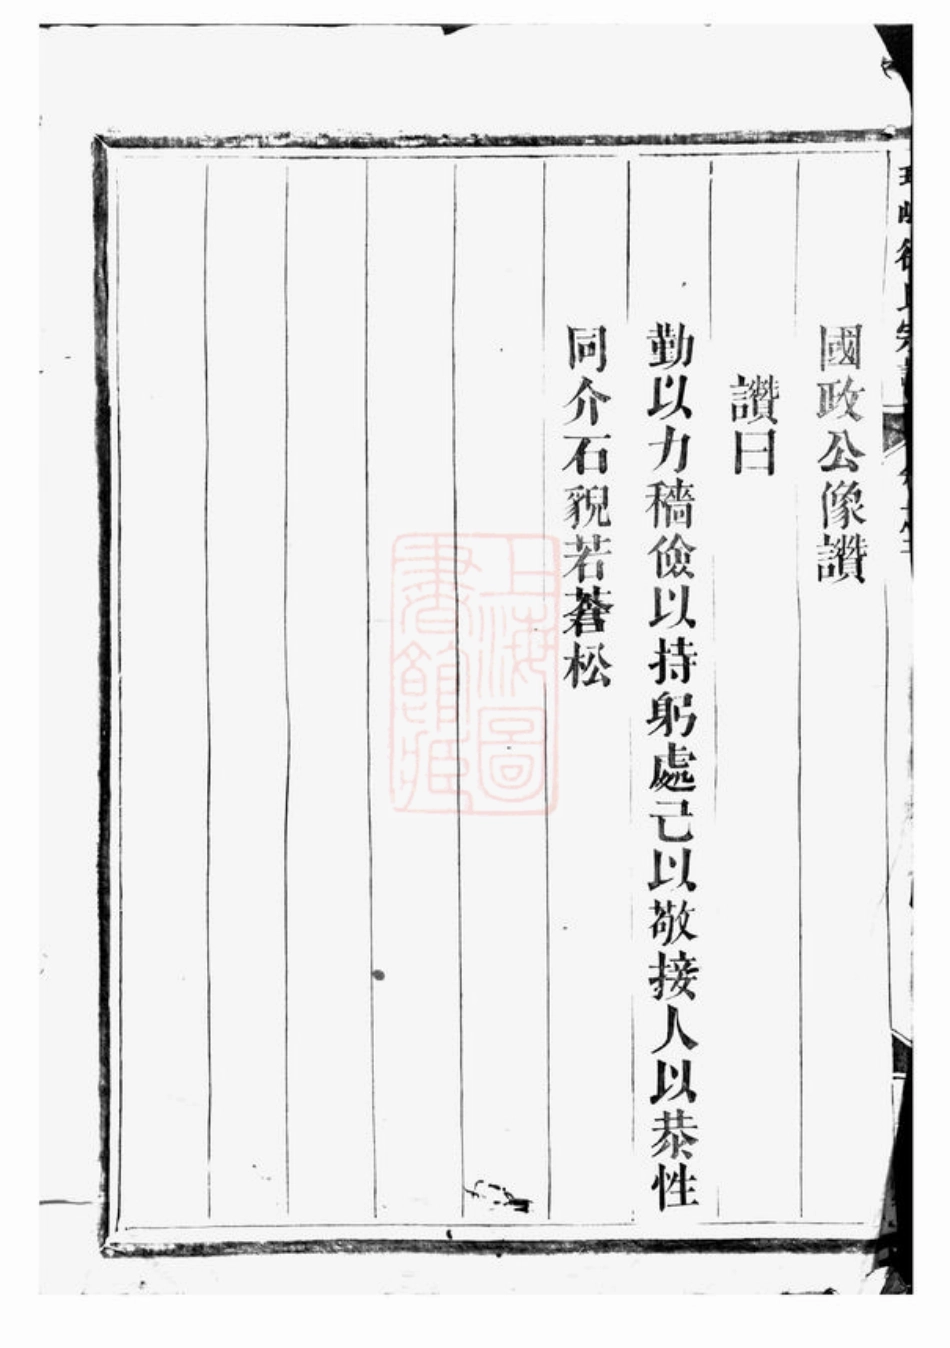 國政公像讚
讚曰
勤以力穡儉以持躬處己以敬接人以恭性
同介石貌若蒼松
上海圖書館藏